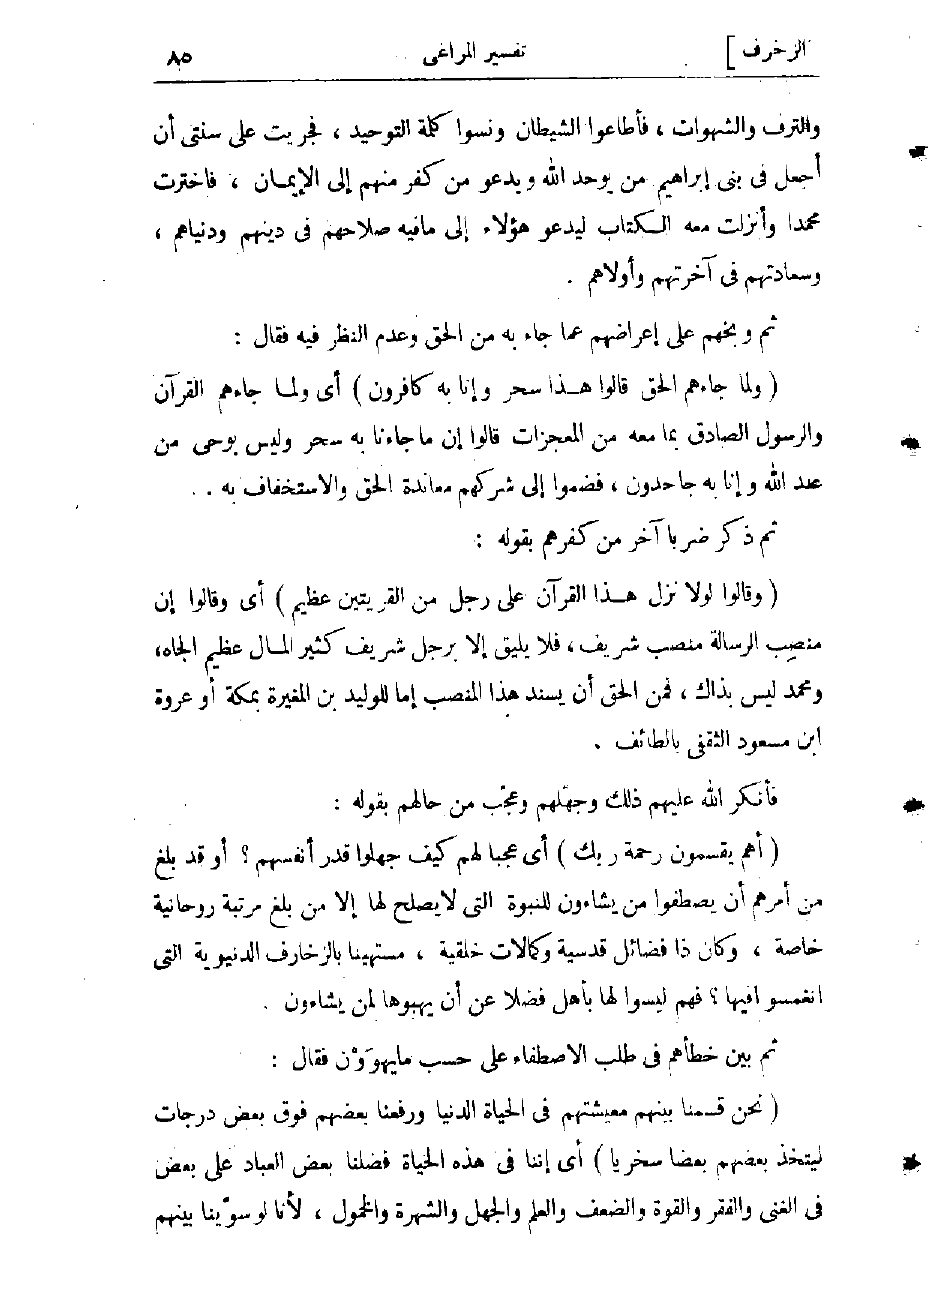 الزخرف ] تفسير المراغى ٨٥
والترف والشهوات ، فأطاعوا الشيطان ونسوا كلمة التوحيد ، فجريت على سنتى أن
أجعل فى بنى إبراهيم من يوحد الله ويدعو من كفر منهم إلى الإيمان ، فاخترت
محمدا وأنزلت معه الكتاب ليدعو هؤلاء إلى مافيه صلاحهم فى دينهم ودنياهم ،
وسعادتهم فى آخرتهم وأولاهم .
ثم وبخهم على إعراضهم عما جاء به من الحق وعدم النظر فيه فقال :
( ولما جاءهم الحق قالوا هذا سحر وإنا به كافرون ) أى ولما جاءهم القرآن
والرسول الصادق بما معه من المعجزات قالوا إن ماجاءنا به سحر وليس بوحى من
عند الله وإنا به جاحدون ، فضموا إلى شركهم معاندة الحق والاستخفاف به . .
ثم ذكر ضربا آخر من كفرهم بقوله :
( وقالوا لولا نزل هذا القرآن على رجل من القريتين عظيم ) أى وقالوا إن
منصب الرسالة منصب شريف ، فلا يليق إلا برجل شريف كثير المال عظيم الجاه،
ومحمد ليس بذاك ، فمن الحق أن يسند هذا المنصب إما للوليد بن المغيرة بمكة أو عروة
ابن مسعود الثقفى بالطائف .
فأنكر الله عليهم ذلك وجهّلهم وعجّب من حالهم بقوله :
( أهم يقسمون رحمة ربك ) أى عجبا لهم كيف جهلوا قدر أنفسهم ؟ أو قد بلغ
من أمرهم أن يصطفوا من يشاءون للنبوة التى لايصلح لها إلا من بلغ مرتبة روحانية
خاصة ، وكان ذا فضائل قدسية وكمالات خلقية ، مستهينا بالزخارف الدنيوية التى
انغمسوا فيها ؟ فهم ليسوا لها بأهل فضلا عن أن يهبوها لمن يشاءون .
ثم بين خطأهم فى طلب الاصطفاء على حسب مايهوَوْن فقال :
( نحن قسمنا بينهم معيشتهم فى الحياة الدنيا ورفعنا بعضهم فوق بعض درجات
ليتخذ بعضهم بعضا سخريا ) أى إننا فى هذه الحياة فضلنا بعض العباد على بعض
فى الغنى والفقر والقوة والضعف والعلم والجهل والشهرة والخمول ، لأنا لو سوّينا بينهم